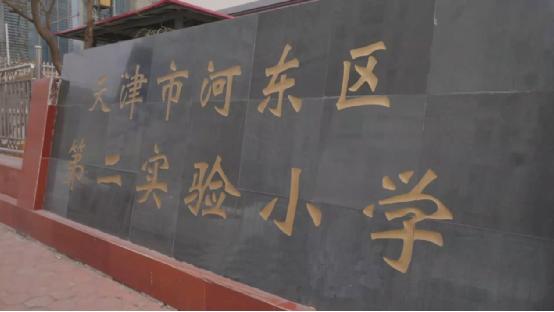 天津市河东区
第二实验小学